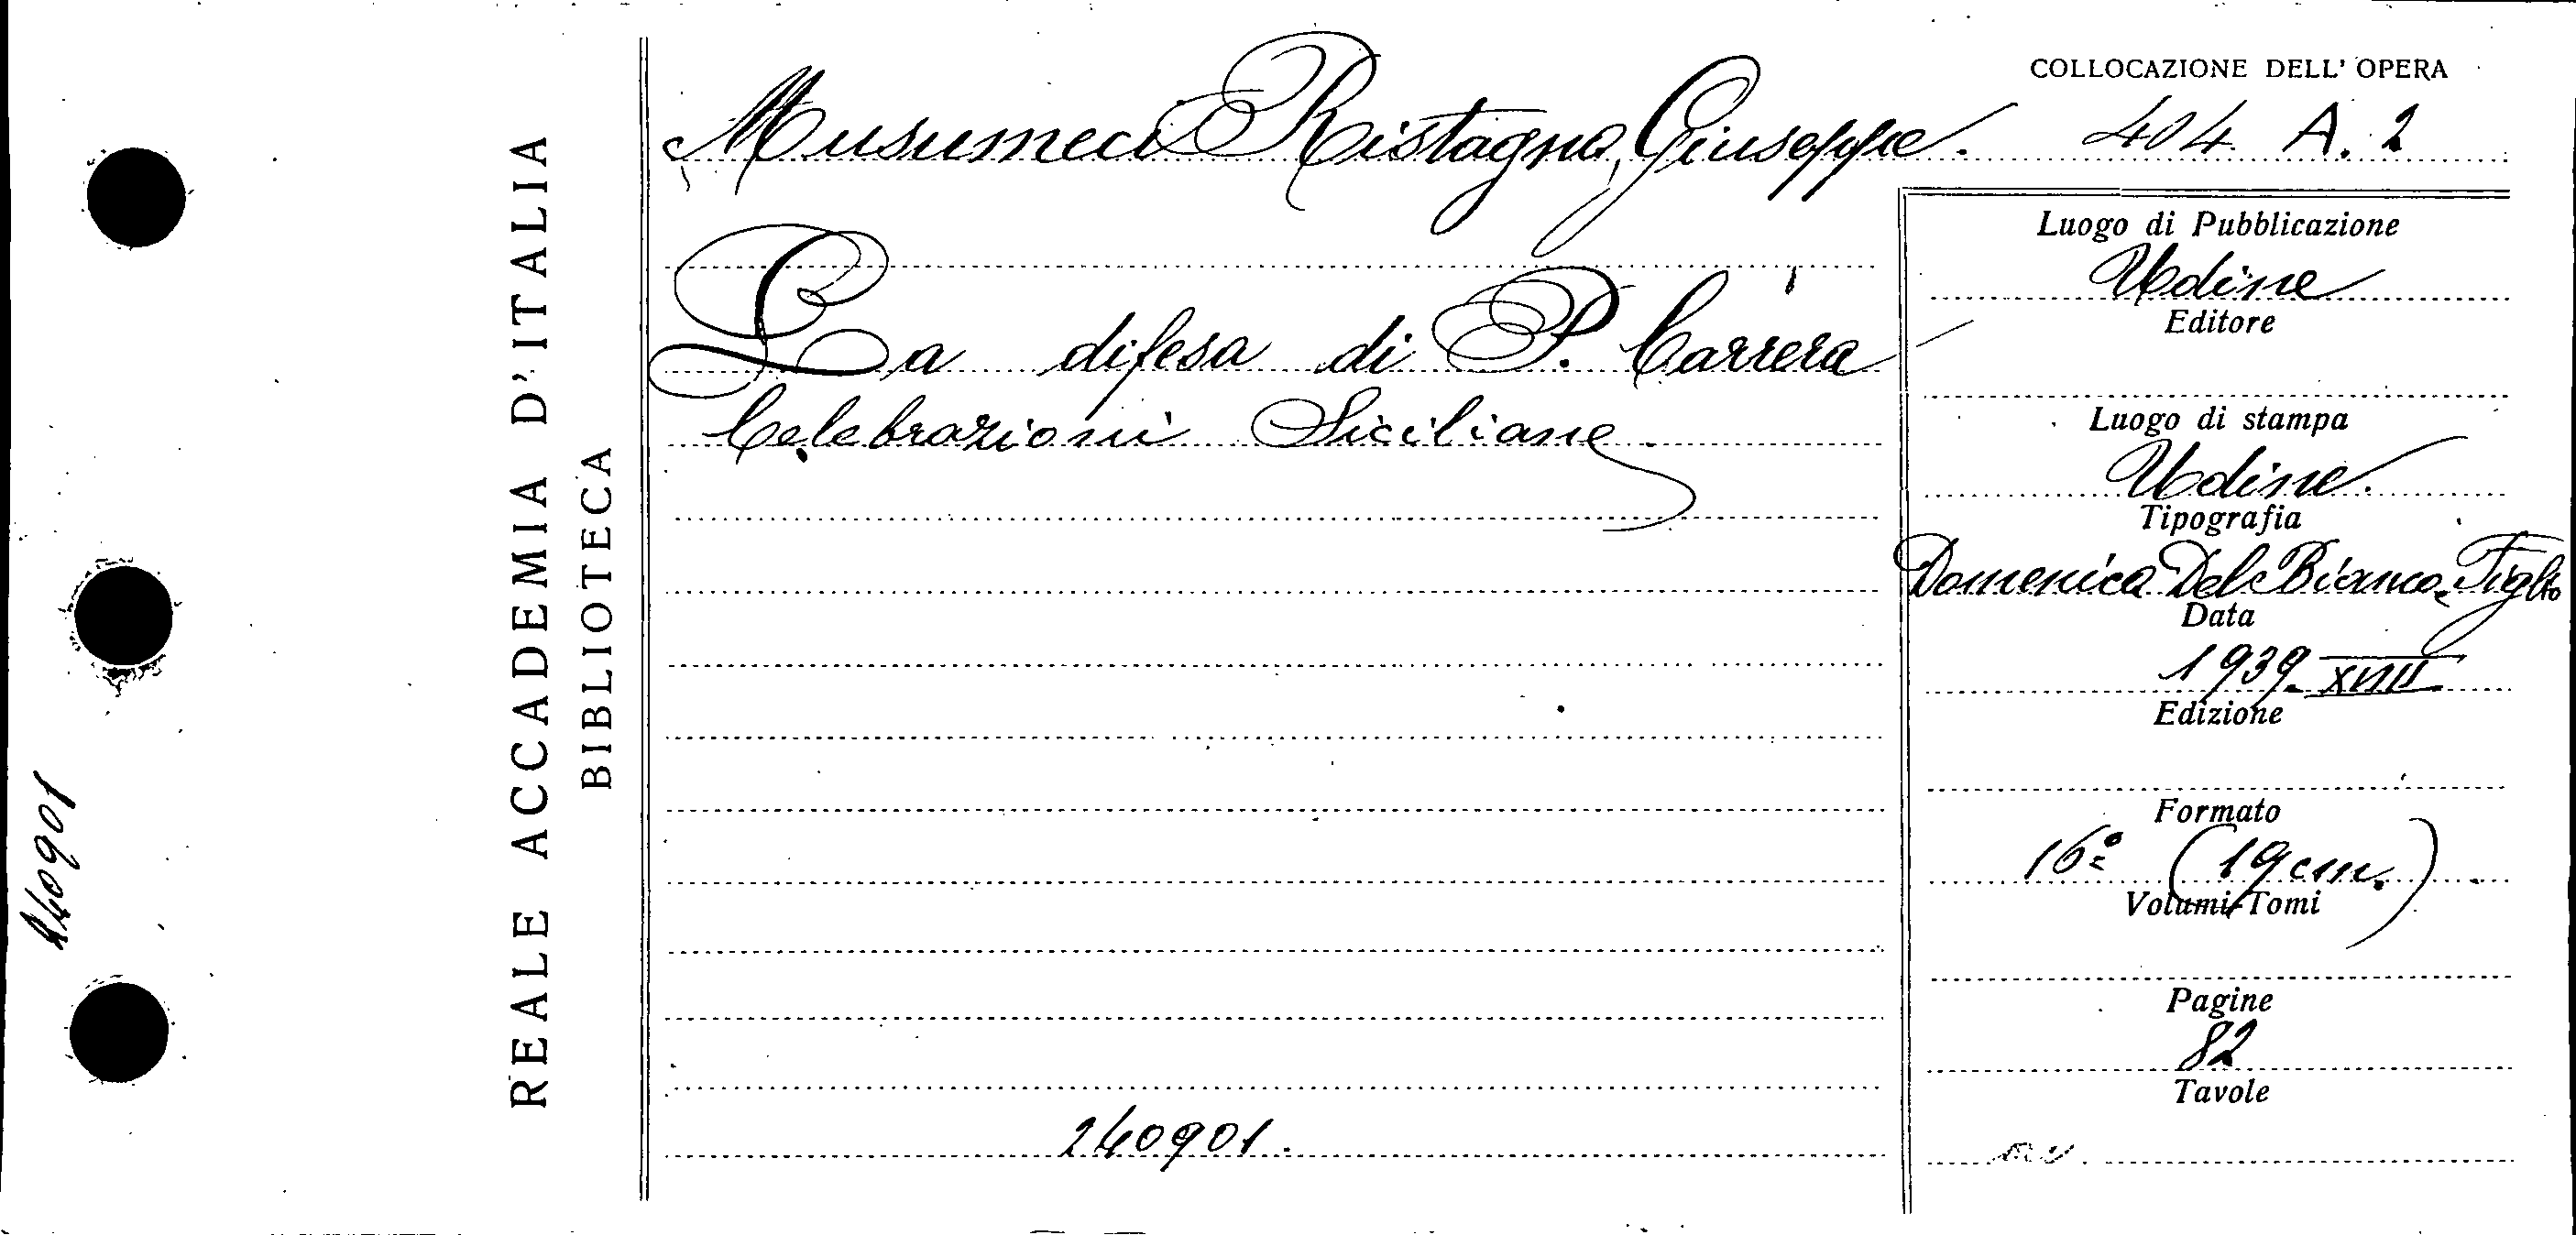 COLLOCAZIONE DELL' OPERA
Musumeci Ristagno, Giuseppe. 404 A. 2
La difesa di P. Carrera
Celebrazioni Siciliane.
240901.
Luogo di Pubblicazione
Udine
Editore
Luogo di stampa
Udine.
Tipografia
Domenica Del Bianco e Figlio
Data
1939 - XVIII
Edizione
Formato
16º (19 cm.)
Volumi-Tomi
Pagine
82
Tavole
REALE ACCADEMIA D'ITALIA
BIBLIOTECA
240901